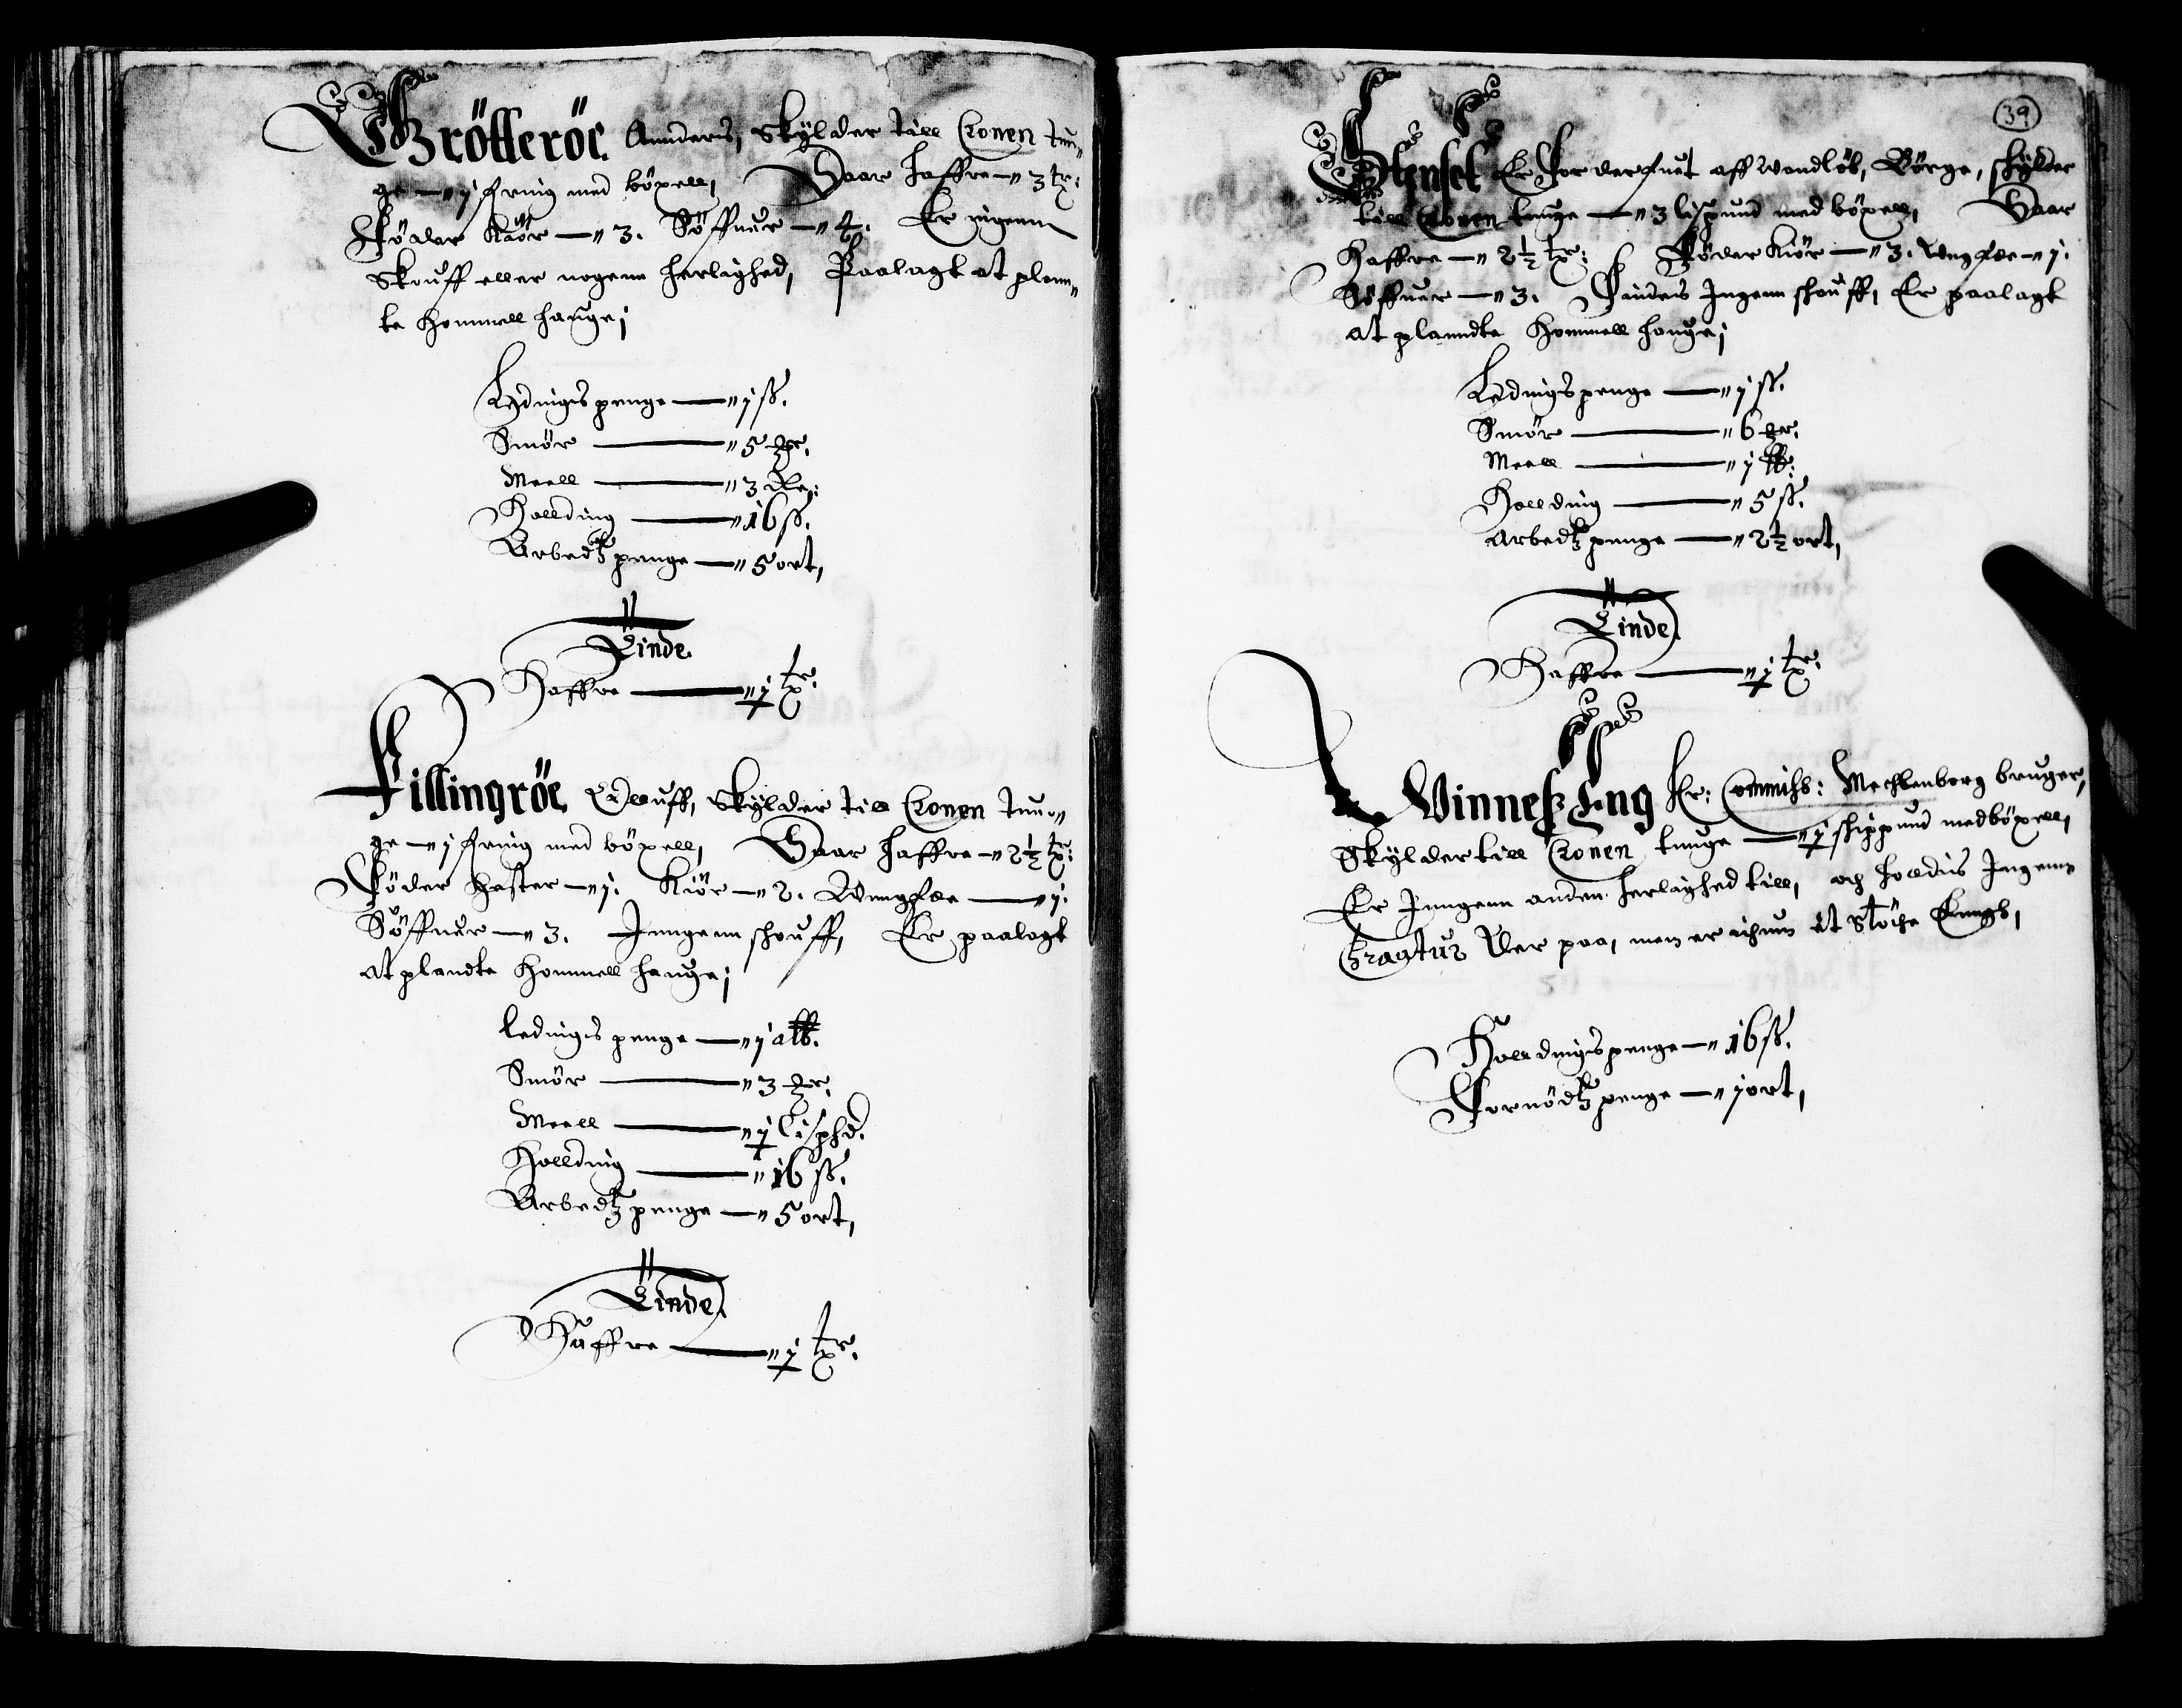 Grölleröe Annders, skÿlder till Cronen tun¬
ge — 1 fring med böxell, Saar haffre — 3 tr:
Föder Kiör — 3. Söffuer — 4. Er ingenn
skouff eller nogenn herlighed, Paalagt at plann¬
te Hommell hauge;
Ledings penge — 1 ß.
Smör — 5 
Meell — 3 
Hollding — 16 ß.
Arbedtz penge — 5 ort,
Tinde
Haffre — 1 tr.
Fillingröe Olluff, skÿlder till Cronen tun¬
ge — 1 fring med böxell, Saar haffre — 2½ tr:
Föder Hester — 1. Kiör — 2. Ungfee — 1.
Söffuer — 3. Inngenn skouff, Er paalagt
at plandte Hommell hauge;
Ledings penge — 1 alb.
Smör — 3 
Meell — 1 lisphd.
Hollding — 16 ß.
Arbedtz penge — 5 ort,
Tinde
Haffre — 1 tr.
39
Er forderfuet aff Wandlöb, Börge, skÿlder
till Cronen tunge — 3 lispund med böxell, Saar
Haffre — 2½ tr: Föder Kiör — 3. Ungfee — 1.
Söffuer — 3. Findeis Ingenn skouff, Er paalagt
at planndte Hommell hauge;
Ledings penge — 1 ß.
Smör — 6 
Meell — 1 
Hollding — 5 ß.
Arbedtz penge — 2½ ort,
Tinde
Haffre — 1 tr.
Winneß Eng Hr: Commiss: Mechlenborg bruger,
Skÿlder till Cronen tunge — 1 skippund med böxell,
Er Inngenn anden herlighed till, och holldis Ingenn
Creatur der paa, men er ichun et støche Eungh,
Holldings penge — 16 ß.
Fornödtz penge — 1 ort,